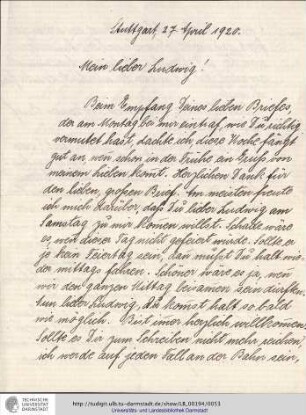 Stuttgart, 27 April 1920.
Mein lieber Ludwig!
Beim Empfang Deines lieben Briefes,
der am Montag bei mir eintraf, wie Du richtig
vermutet hast, dachte ich, diese Woche fängt
gut an, wen schon in der Frühe ein Gruß von
meinem Lieben komt. Herzlichen Dank für
den lieben, großen Brief. Am meisten freute
ich mich darüber, daß Du lieber Ludwig am
Samstag zu mir komen willst. Schade wäre
es, wen dieser Tag nicht gefeiert würde. Sollte es
ja kein Feiertag sein, dan mußt Du halt
mittags fahren. Schöner wäre es ja, wen
wir den ganzen Mittag beisamen sein dürften.
Nun lieber Ludwig, Du komst halt so bald
wie möglich. Bist imer herzlich willkomen.
Sollte es Dir zum Schreiben nicht mehr reichen,
ich werde auf jeden Fall an der Bahn sein,
TECHNISCHE
UNIVERSITÄT
DARMSTADT
http://tudigit.ulb.tu-darmstadt.de/show/LB_00194/0053
Universitäts- und Landesbibliothek Darmstadt